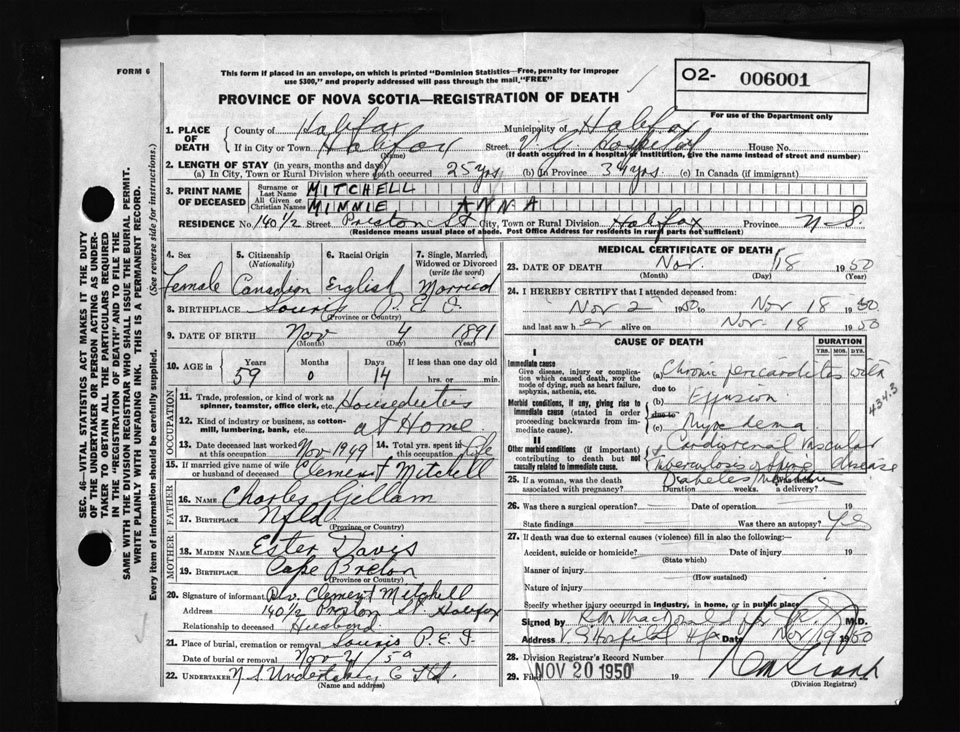 FORM 6
This form if placed in an envelope, on which is printed "Dominion Statistics—Free, penalty for improper
use $300," and properly addressed will pass through the mail, "FREE"
O2- 006001
For use of the Department only
PROVINCE OF NOVA SCOTIA—REGISTRATION OF DEATH
1. PLACE OF DEATH
County of Halifax Municipality of Halifax
If in City or Town Halifax Street V.G. Hospital House No.
(Name) (If death occurred in a hospital or institution, give the name instead of street and number)
2. LENGTH OF STAY (in years, months and days)
(a) In City, Town or Rural Division where death occurred 25 yrs (b) In Province 34 yrs. (c) In Canada (if immigrant)
3. PRINT NAME OF DECEASED
Surname or Last Name MITCHELL
All Given or Christian Names MINNIE ANNA
RESIDENCE No. 140 1/2 Street Preston St City, Town or Rural Division Halifax Province N.S.
(Residence means usual place of abode. Post Office Address for residents in rural parts not sufficient)
4. Sex
Female
5. Citizenship (Nationality)
Canadian
6. Racial Origin
English
7. Single, Married, Widowed or Divorced (write the word)
Married
8. BIRTHPLACE Souris P.E.I.
(Province or Country)
9. DATE OF BIRTH Nov 4 1891
(Month) (Day) (Year)
10. AGE in Years Months Days If less than one day old
59 0 14 hrs. or min.
OCCUPATION
11. Trade, profession, or kind of work as spinner, teamster, office clerk, etc. Houseduties
12. Kind of industry or business, as cotton-mill, lumbering, bank, etc. at Home
13. Date deceased last worked at this occupation Nov 1949 14. Total yrs. spent in this occupation Life
15. If married give name of wife or husband of deceased Clement Mitchell
FATHER
16. Name Charles Gillam
17. Birthplace Nfld
(Province or Country)
MOTHER
18. Maiden Name Ester Davis
19. Birthplace Cape Breton
(Province or Country)
20. Signature of informant Clement Mitchell
Address 140 1/2 Preston St. Halifax
Relationship to deceased Husband
21. Place of burial, cremation or removal Souris P.E.I.
Date of burial or removal Nov
22. UNDERTAKER N.S. Undertaking Ltd.
(Name and address)
MEDICAL CERTIFICATE OF DEATH
23. DATE OF DEATH Nov. 18 1950
(Month) (Day)
24. I HEREBY CERTIFY that I attended deceased from:
Nov 2 1950 to Nov 18 1950
and last saw her alive on Nov. 18 1950
CAUSE OF DEATH DURATION
YRS. MOS. DYS.
I
Immediate cause
Give disease, injury or complication which caused death, not the mode of dying, such as heart failure, asphyxia, asthenia, etc.
(a) Chronic pericarditis with
due to
Morbid conditions, if any, giving rise to immediate cause (stated in order proceeding backwards from immediate cause).
(b) Effusion
due to
(c) Myxedema
434.3
II
Other morbid conditions (if important) contributing to death but not causally related to immediate cause.
Cardiorenal vascular disease
Tuberculosis of Spine
Diabetes
25. If a woman, was the death associated with pregnancy? Duration weeks. a delivery?
26. Was there a surgical operation? Date of operation 19
State findings Was there an autopsy? Yes
27. If death was due to external causes (violence) fill in also the following:—
Accident, suicide or homicide? Date of injury 19
(State which)
Manner of injury
(How sustained)
Nature of injury
Specify whether injury occurred in industry, in home, or in public place
Signed by MacDonald M.D.
Address V G Hospital Hfx Date Nov 19 1950
28. Division Registrar's Record Number
29. Filed NOV 20 1950 19
(Division Registrar)
SEC. 46—VITAL STATISTICS ACT MAKES IT THE DUTY
OF THE UNDERTAKER OR PERSON ACTING AS UNDER-
TAKER TO OBTAIN ALL THE PARTICULARS REQUIRED
IN THE "REGISTRATION OF DEATH" AND TO FILE THE
SAME WITH THE DIVISION REGISTRAR WHO SHALL ISSUE THE BURIAL PERMIT.
WRITE PLAINLY WITH UNFADING INK. THIS IS A PERMANENT RECORD.
Every item of information should be carefully supplied. (See reverse side for instructions.)